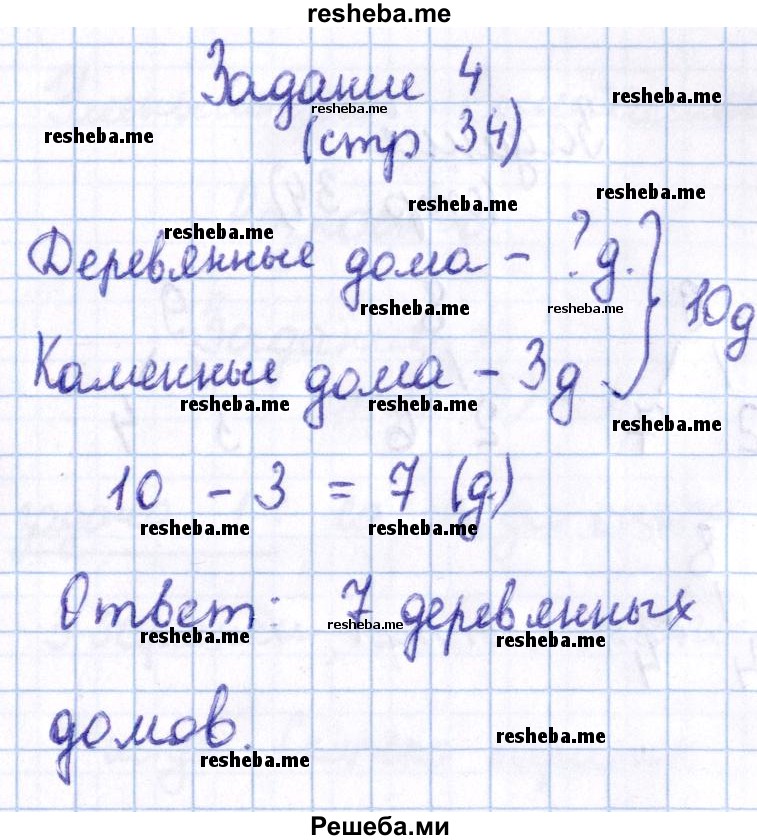 resheba.me
Задание 4
resheba.me
resheba.me
resheba.me
(стр 34)
resheba.me
resheba.me
resheba.me
Деревянные дома - ? д. } 10д
resheba.me
resheba.me
Каменные дома - 3д.
resheba.me
resheba.me
resheba.me
10 - 3 = 7 (д)
resheba.me
resheba.me
Ответ: 7 деревянных
resheba.me
resheba.me
resheba.me
домов.
resheba.me
resheba.me
Решеба.ми